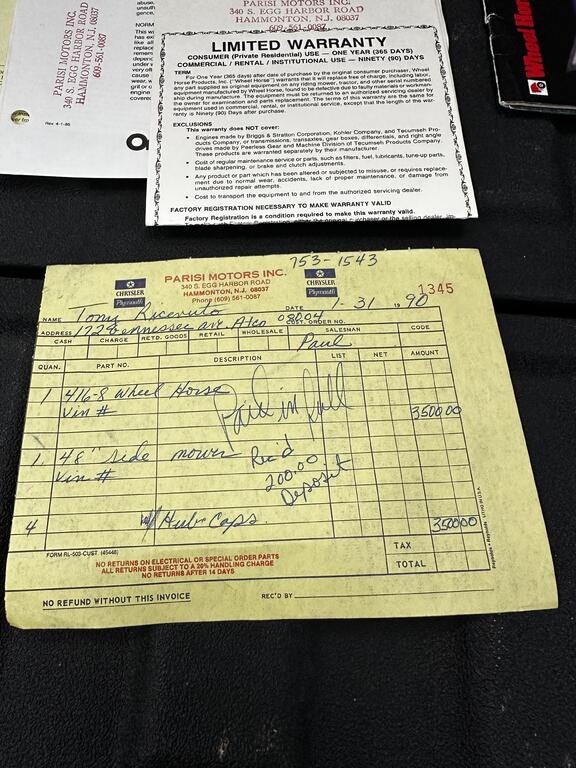 PARISI MOTORS INC.
340 S. EGG HARBOR ROAD
HAMMONTON, N.J. 08037
609-561-0087
Rev. 4-1-86
NORM
PARISI MOTORS INC.
340 S. EGG HARBOR ROAD
HAMMONTON, N.J. 08037
609-561-0087
LIMITED WARRANTY
CONSUMER (Private Residential) USE — ONE YEAR (365 DAYS)
COMMERCIAL / RENTAL / INSTITUTIONAL USE — NINETY (90) DAYS
TERM
For One Year (365 days) after date of purchase by the original consumer purchaser, Wheel
Horse Products, Inc. ("Wheel Horse") warrants that it will replace free of charge, including labor,
any part supplied as original equipment on any riding mower, tractor, and other serial numbered
equipment manufactured by Wheel Horse, found to be defective due to faulty materials or workman-
ship during manufacture. The equipment must be returned to an authorized servicing dealer by
the owner for examination and parts replacement. The terms of this warranty are the same for
equipment used in commercial, rental, or institutional service, except that the length of the war-
ranty is Ninety (90) Days after purchase.
EXCLUSIONS
This warranty does NOT cover:
• Engines made by Briggs & Stratton Corporation, Kohler Company, and Tecumseh Pro-
ducts Company, or transmissions, transaxles, gear boxes, differentials, and right angle
drives made by Peerless Gear and Machine Division of Tecumseh Products Company.
These products are warranted separately by their manufacturer.
• Cost of regular maintenance service or parts, such as filters, fuel, lubricants, tune-up parts,
blade sharpening, or brake and clutch adjustments.
• Any product or part which has been altered or subjected to misuse, or requires replace-
ment due to normal wear, accidents, lack of proper maintenance, or damage from
unauthorized repair attempts.
• Cost to transport the equipment to and from the authorized servicing dealer.
FACTORY REGISTRATION NECESSARY TO MAKE WARRANTY VALID
Factory Registration is a condition required to make this warranty valid.
Wheel Hor
753-1543
CHRYSLER
Plymouth
PARISI MOTORS INC.
340 S. EGG HARBOR ROAD
HAMMONTON, N.J. 08037
Phone (609) 561-0087
CHRYSLER
Plymouth
1345
NAME Tony Ricevuto DATE 1-31 1990
ADDRESS 172 Tennessee ave. Atco 08004 CUST. ORDER NO.
CASH CHARGE RETD. GOODS RETAIL WHOLESALE SALESMAN Paul CODE
QUAN. PART NO. DESCRIPTION LIST NET AMOUNT
1 416-8 Wheel Horse
Vin # Paid in full 3500 00
1. 48" side mower Rec'd
Vin # 200.00
Deposit
4 w/ Hub Caps 3500 00
FORM RL-503-CUST. (45448)
NO RETURNS ON ELECTRICAL OR SPECIAL ORDER PARTS
ALL RETURNS SUBJECT TO A 20% HANDLING CHARGE
NO RETURNS AFTER 14 DAYS
TAX
TOTAL
NO REFUND WITHOUT THIS INVOICE REC'D BY
Reynolds + Reynolds LITHO IN U.S.A.